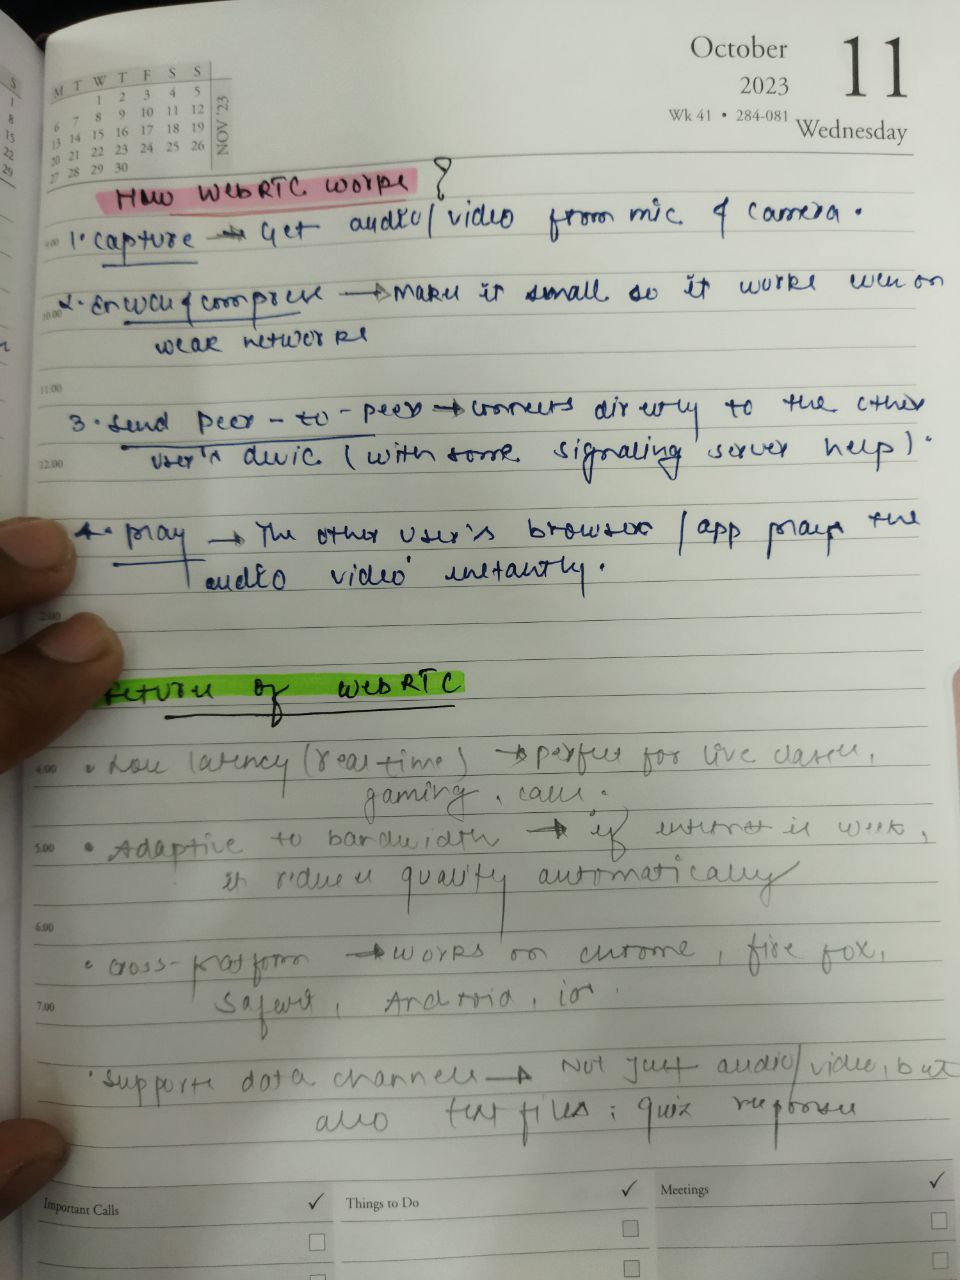 October
2023
11
Wk 41 • 284-081
Wednesday
M T W T F S S
1 2 3 4 5
6 7 8 9 10 11 12
13 14 15 16 17 18 19
20 21 22 23 24 25 26
27 28 29 30
NOV '23
S
1
8
15
22
29
How WebRTC works ?
9.00
1. Capture → Get audio/video from mic & camera.
2. Encode & compress → Make it small so it works well on
10.00
weak networks
11.00
3. Send peer-to-peer → connects directly to the other
12.00
user's devic (with some signaling server help).
4. Play → The other user's browser / app plays the
audio video instantly.
2.00
feture of webRTC
4.00
• Low latency (real-time) → perfect for live classes,
gaming, calls.
5.00
• Adaptive to bandwidth → if internet is week,
it reduces quality automatically
6.00
• cross-platform → works on chrome, fire fox,
7.00
Safari, Android, ios.
• Supports data channels → Not just audio/video, but
also text files; quiz response
Important Calls ✓
Things to Do ✓
Meetings ✓